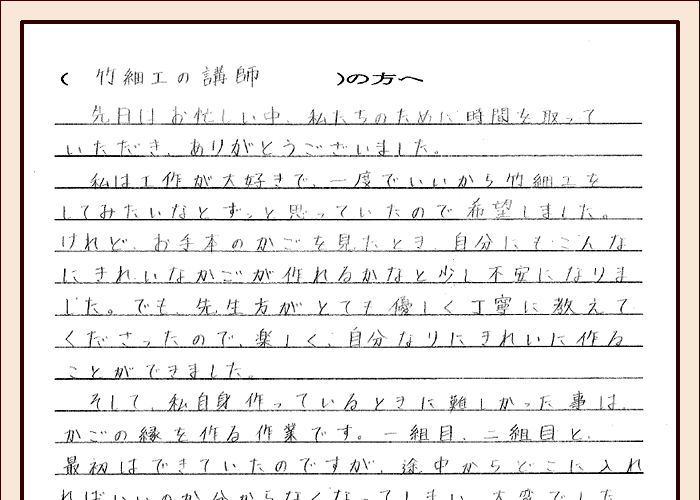 ( 竹細工の講師 )の方へ
先日はお忙しい中、私たちのために時間を取って
いただき、ありがとうございました。
私は工作が大好きで、一度でいいから竹細工を
してみたいなとずっと思っていたので希望しました。
けれど、お手本のかごを見たとき、自分にもこんな
にきれいなかごが作れるかなと少し不安になりま
した。でも、先生方がとても優しく丁寧に教えて
くださったので、楽しく、自分なりにきれいに作る
ことができました。
そして、私自身作っているときに難しかった事は、
かごの縁を作る作業です。一組目、二組目と、
最初はできていたのですが、途中からどこに入れ
ればいいのか分からなくなってしまい、大変でした